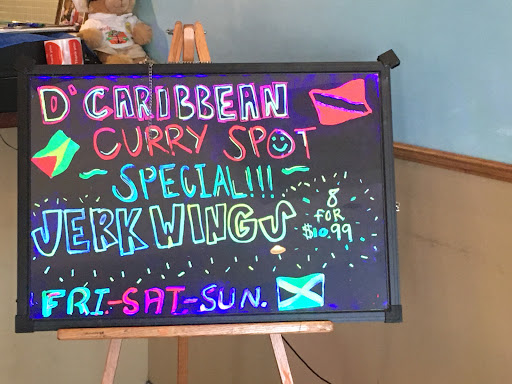 D'CARIBBEAN
CURRY SPOT
~SPECIAL!!!~
JERK WINGS 8 FOR $10.99
FRI-SAT-SUN.